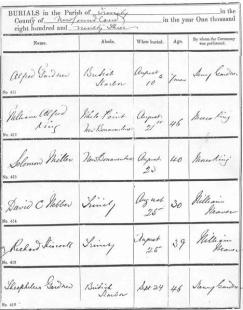 BURIALS in the Parish of Trinity in the
County of Newfoundland in the year One thousand
eight hundred and ninety three
Name. Abode. When buried. Age. By whom the Ceremony was performed.
Alfred Gardner British Harbor August 10 years Gardner
No. 411
William Alfred King White Point New Bonaventure August 21 46 Moses King
Solomon Miller New Bonaventure August 23 40 Moses King
No. 413
David C Webber Trinity August 25 30 William
No. 414
Richard Trinity August 25 39 William
Theophilus Gardner British Harbor Sept 24 46 Gardner